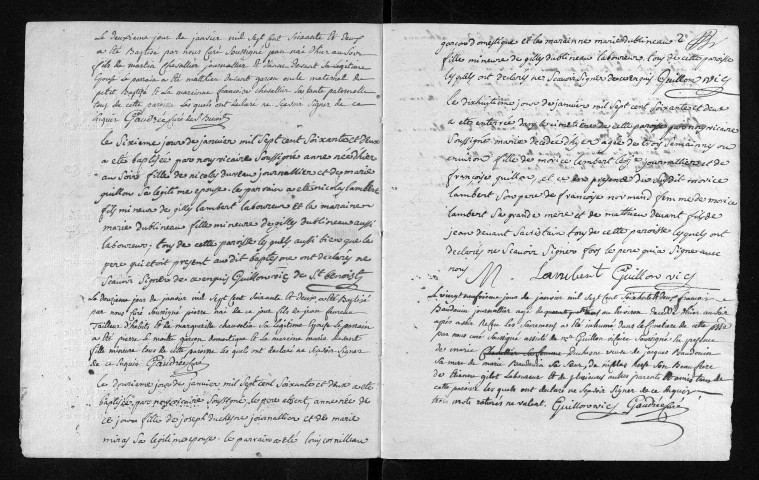 Le deuxieme jour de janvier mil sept cent soixante et deux
a été Baptisé par nous Curé soussigné jean né d'hier au soir
fils de martin chevallier journallier et
sa légitime
Epouse le parain a été mathieu devant garçon oncle maternel du
petit Baptisé et la maraine françoise chevallier sa tante paternelle
tous de cette paroisse lesquels ont déclaré ne sçavoir signer de ce
enquis Gaudrée Curé de St Benoist
Le sixieme jour de janvier mil sept cent soixante et deux
a eté baptisée par nous vicaire soussigné anne née d'hier
au soir fille de nicolas dureau journallier et de marie
guillon sa legitime epouse. le parrain a eté nicolas lambert
fils mineur de gilly lambert laboureur et la maraine
marie dublineau fille mineure de gilly dublineau aussi
laboureur; tous de cette paroisse lesquels aussi bien que le
pere qui etoit present audit baptesme ont declarés ne
sçavoir signer de ce enquis Guillon vic de St benoist
Le deuxieme jour de janvier mil sept cent soixante et deux a été Baptisé
par nous Curé soussigné pierre né de ce jour fils de jean
Tailleur d'habits et de marguerite chauvelin sa légitime Epouse le parain
a été pierre garçon domestique et la maraine marie devant
fille mineure tous de cette paroisse lesquels ont déclaré ne sçavoir signer
de ce Enquis Gaudrée Curé
Le douzieme jour de janvier mil sept cent soixante et deux a eté
baptisée par nous vicaire soussigné le pere absent, anne née de
ce jour fille de joseph duchesne journallier et de marie
miras sa legitime epouse. le parrain a eté louis cornilleau
garçon domestique et la maraine marie dublineau
fille mineure de gilly dublineau laboureur, tous de cette paroisse
lesquels ont declarés ne sçavoir signer de ce enquis Guillon vic
Le dixhuitieme jour de janvier mil sept cent soixante et deux
a eté enterrée dans le cimetiere de cette paroisse par nous vicaire
soussigné marie decedée d'hyer agée de trois semaines ou
environ fille de morice lambert journallier et de
françoise guillon, et ce en presence dudit morice
lambert son pere de françoise normand femme de morice
lambert sa grande mere et de mathieu devant fils de
jean devant sacristain tous de cette paroisse lesquels ont
declarés ne sçavoir signer fors le pere qui a signé avec
nous M. Lambert Guillon vic
Le vingt neufvieme jour de janvier mil sept cent soixante et deux françois
Baudouin journallier agé de ans ou environ décédé d'hier au soir
après avoir reçu les sacremens a été inhumé dans le cimetiere de cette
par nous Curé soussigné assisté de Mr Guillon vicaire soussigné en présence
de marie duchesne veuve de jacques Baudouin
sa mere de marie Baudouin sa soeur, de nicolas son Beau frere
de Etienne gilet Laboureur et de plusieurs autres parents et amis tous de
cette paroisse lesquels ont déclaré ne sçavoir signer de ce Enquis
trois mots raturés ne valent. Guillon vic Gaudrée Curé